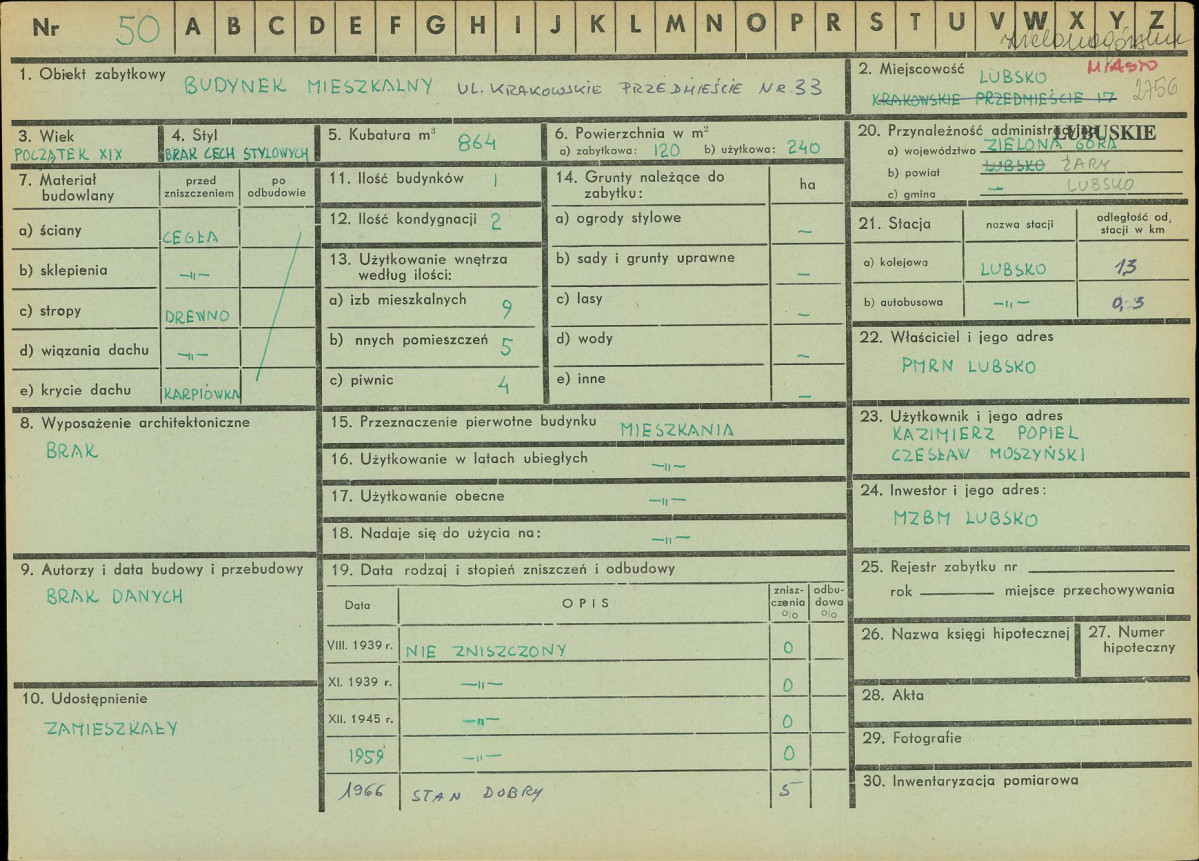 Nr 50 A B C D E F G H I J K L M N O P R S T U V W X Y Z
1. Obiekt zabytkowy BUDYNEK MIESZKALNY UL. KRAKOWSKIE PRZEDMIEŚCIE NR 33
2. Miejscowość LUBSKO MIASTO
KRAKOWSKIE PRZEDMIEŚCIE 17 2756
3. Wiek
POCZĄTEK XIX
4. Styl
BRAK CECH STYLOWYCH
5. Kubatura m³ 864
6. Powierzchnia w m²
a) zabytkowa: 120 b) użytkowa: 240
20. Przynależność administracyjna LUBUSKIE
a) województwo ZIELONA GÓRA
b) powiat LUBSKO ŻARY
c) gmina — LUBSKO
7. Materiał budowlany
przed zniszczeniem
po odbudowie
a) ściany CEGŁA
b) sklepienia —„—
c) stropy DREWNO
d) wiązania dachu —„—
e) krycie dachu KARPIÓWKA
11. Ilość budynków 1
12. Ilość kondygnacji 2
13. Użytkowanie wnętrza
według ilości:
a) izb mieszkalnych 9
b) nnych pomieszczeń 5
c) piwnic 4
14. Grunty należące do
zabytku:
ha
a) ogrody stylowe —
b) sady i grunty uprawne —
c) lasy —
d) wody —
e) inne —
21. Stacja
nazwa stacji
odległość od,
stacji w km
a) kolejowa LUBSKO 1,3
b) autobusowa —„— 0,3
22. Właściciel i jego adres
PMRN LUBSKO
8. Wyposażenie architektoniczne
BRAK
15. Przeznaczenie pierwotne budynku MIESZKANIA
16. Użytkowanie w latach ubiegłych —„—
17. Użytkowanie obecne —„—
18. Nadaje się do użycia na: —„—
23. Użytkownik i jego adres
KAZIMIERZ POPIEL
CZESŁAW MOSZYŃSKI
24. Inwestor i jego adres:
MZBM LUBSKO
9. Autorzy i data budowy i przebudowy
BRAK DANYCH
19. Data rodzaj i stopień zniszczeń i odbudowy
Data OPIS
znisz-
czenia
%
odbu-
dowa
%
VIII. 1939 r. NIE ZNISZCZONY 0
XI. 1939 r. —„— 0
XII. 1945 r. —„— 0
1959 —„— 0
1966 STAN DOBRY 5
10. Udostępnienie
ZAMIESZKAŁY
25. Rejestr zabytku nr
rok miejsce przechowywania
26. Nazwa księgi hipotecznej
27. Numer
hipoteczny
28. Akta
29. Fotografie
30. Inwentaryzacja pomiarowa